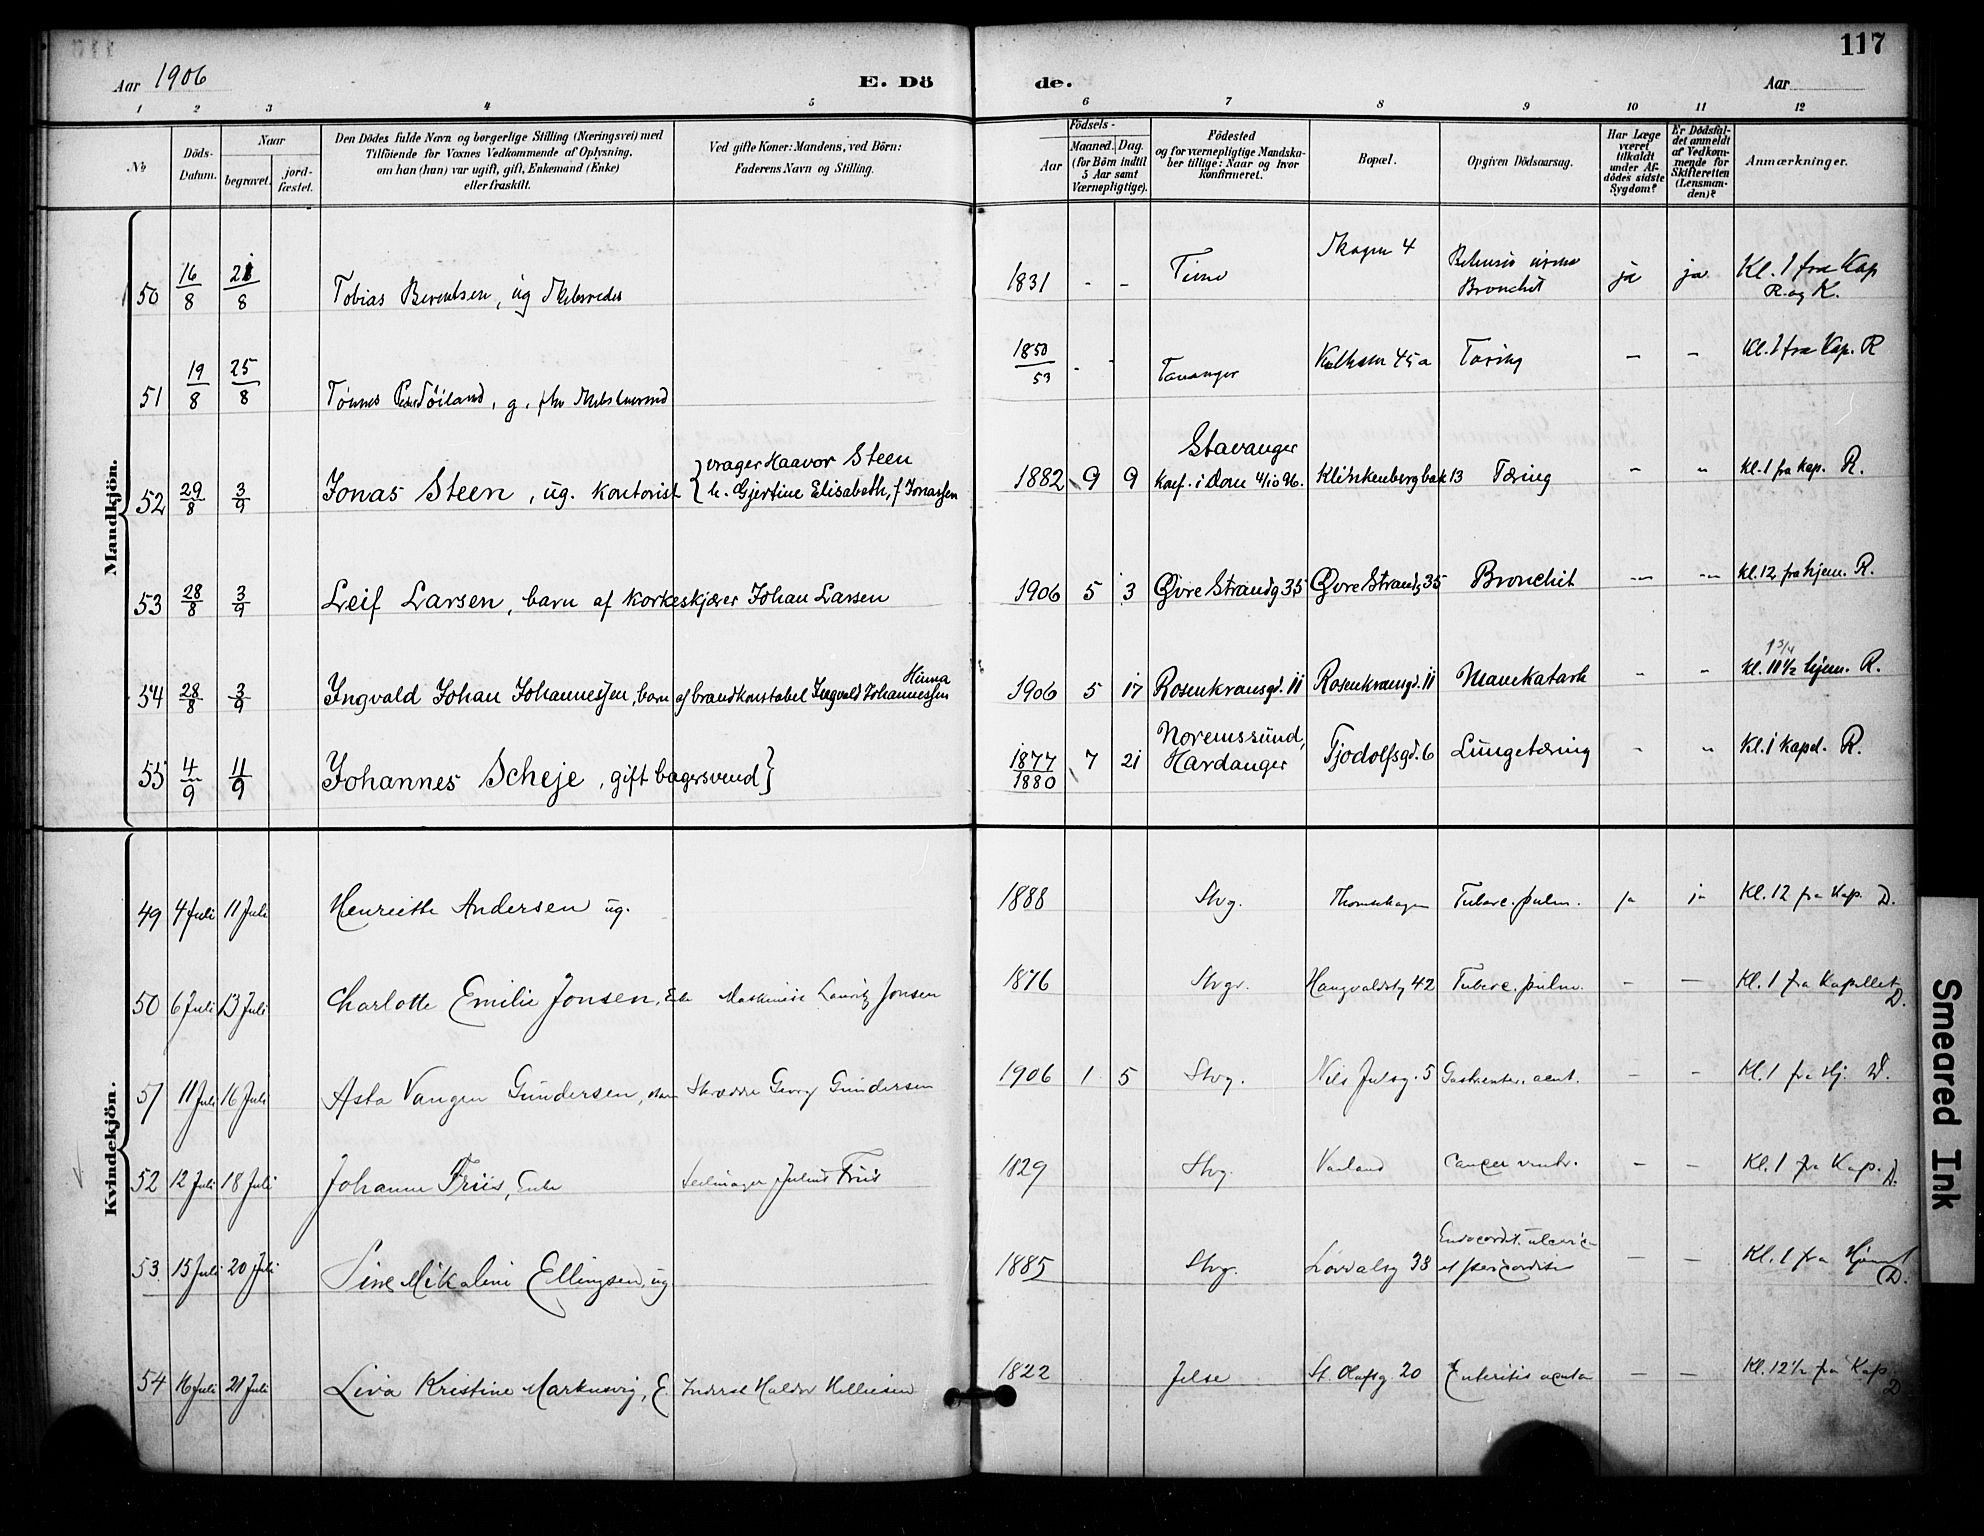 117
Aar 1906
E. Dö
de.
Aar
1 2 3 4 5 6 7 8 9 10 11 12
No
Döds-Datum.
Naar
begravet.
jord-fæstet.
Den Dödes fulde Navn og borgerlige Stilling (Næringsvei) med
Tilföiende for Voxnes Vedkommende af Oplysning,
om han (hun) var ugift, gift, Enkemand (Enke)
eller fraskilt.
Ved gifte Koner: Mandens, ved Börn:
Faderens Navn og Stilling.
Födsels-
Aar
Maaned. Dag.
(for Börn indtil
5 Aar samt
Værnepligtige).
Födested
og for værnepligtige Mandska-
ber tillige: Naar og hvor
konfirmeret.
Bopæl.
Opgiven Dödsaarsag.
Har Læge
været
tilkaldt
under Af-
dödes sidste
Sygdom?
Er Dödsfal-
det anmeldt
af Vedkom-
mende for
Skifteretten
(Lensman-
den)?
Anmærkninger.
Mandkjön.
50 16/8 21/8 Tobias Berentsen, ug 1831 - - Time Skagen 4 Bronchit ja ja Kl. 1 fra Kap
R. og K.
51 19/8 25/8 Tönnes Töiland, g. 1850/53 - - Tananger 45a Tæring - - Kl. 1 fra Kap. R
52 29/8 3/9 Jonas Steen, ug. kontorist { vrager Haavor Steen
h. Gjertine Elisabeth, f Jonassen 1882 9 9 Stavanger
konf. i Dom 4/10 96. Klinkenbergbak 13 Tæring - " kl. 1 fra kap. R.
53 28/8 3/9 Leif Larsen, barn af korkeskjærer Johan Larsen 1906 5 3 Øvre Strandg 35 Øvre Strandg 35 Bronchit - - kl. 12 fra hjem. R.
54 28/8 3/9 Ingvald Johan Johannessen, barn af brandkonstabel Ingvald Johannessen Hinna 1906 5 17 Rosenkransgd. 11 Rosenkransgd. 11 Mavekatarh - " 1 3/4
kl. 11 1/2 hjem. R.
55 4/9 11/9 Johannes Scheje, gift bagersvend} 1877/1880 7 21 Noremssund,
Hardanger Tjodolfsgd. 6 Lungetæring - " Kl. 1 kapel. R.
Kvindekjön.
49 4 Juli 11 Juli Henriette Andersen ug. 1888 Stvg. Tuberc. pulm. ja ja Kl. 12 fra Kap. D.
50 6 Juli 13 Juli Charlotte Emilie Jonsen, Maskinist Lauritz Jonsen 1876 Stvgr. Haugvaldstg 42 Tuberc. pulm. - - Kl. 1 fra Kapellet
D.
51 11 Juli 16 Juli Asta Vangen Gundersen, Skrædder Georg Gundersen 1906 1 5 Stvg. Nils Julsg. 5 Gastroenter. acut. - - Kl. 1 fra Hj. D.
52 12 Juli 18 Juli Johanne Friis, Enke Seilmager Julius Friis 1829 Stvg Varland Cancer ventr. - - Kl. 1 fra Kap. D.
53 15 Juli 20 Juli Sine Mikaline Ellingsen, ug 1885 Stvg. Lövdalsg 33 Endocardit. ulceric
et pericarditis - - Kl. 1 fra Hjem
D.
54 16 Juli 21 Juli Liva Kristine Markusvig, E. Inderst Haldor Helliesen 1822 Jelse St. Olafsg 20 Enteritis acuta - - Kl. 12 1/2 fra Kap.
D
Smeared Ink